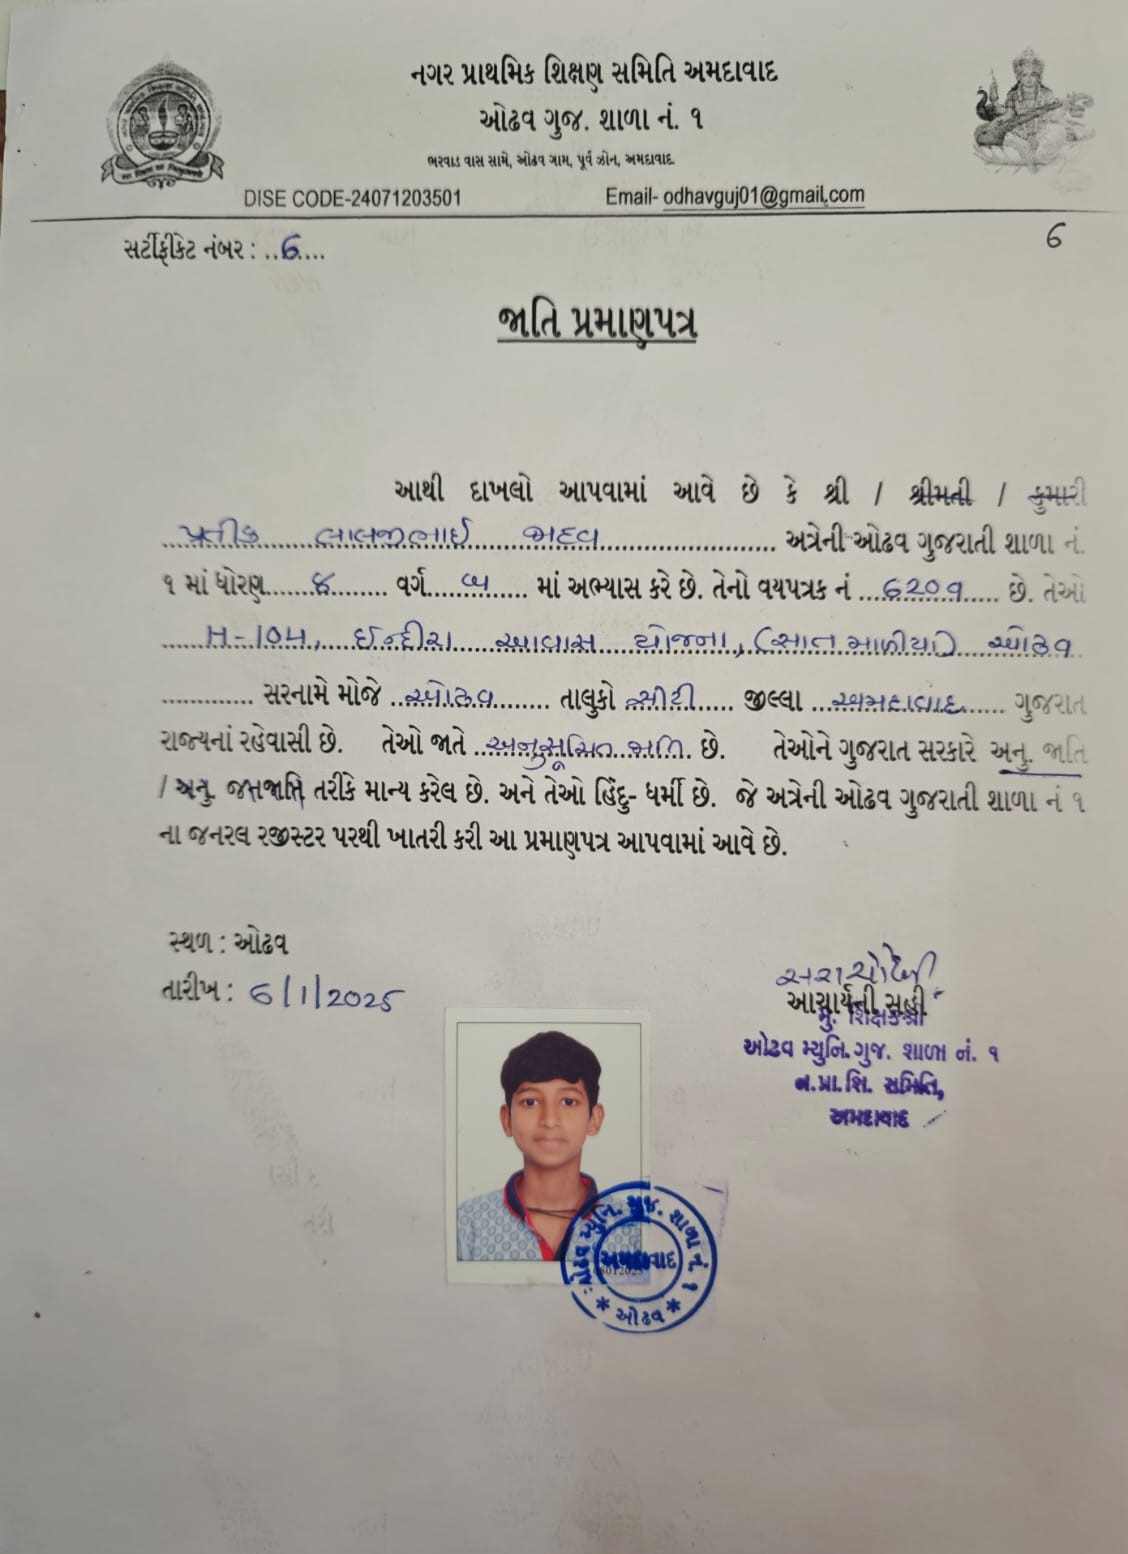 નગર પ્રાથમિક શિક્ષણ સમિતિ અમદાવાદ
ઓઢવ ગુજ. શાળા નં. ૧
ભરવાડ વાસ સામે, ઓઢવ ગામ, પૂર્વ ઝોન, અમદાવાદ.
DISE CODE-24071203501 Email- odhavguj01@gmail.com
સર્ટીફીકેટ નંબર : ..6.... 6
જાતિ પ્રમાણપત્ર
આથી દાખલો આપવામાં આવે છે કે શ્રી / શ્રીમતી / કુમારી
પ્રતીક લાલજીભાઈ અત્રેની ઓઢવ ગુજરાતી શાળા નં.
૧ માં ધોરણ વર્ગ બ માં અભ્યાસ કરે છે. તેનો વયપત્રક નં ...6209..... છે. તેઓ
H-104, ઈન્દીરા આવાસ યોજના, (સાત માળીયા) ઓઢવ
............. સરનામે મોજે ..ઓઢવ....... તાલુકો સીટી..... જીલ્લા ...અમદાવાદ...... ગુજરાત
રાજ્યનાં રહેવાસી છે. તેઓ જાતે ..અનુસૂચિત જાતિ. છે. તેઓને ગુજરાત સરકારે અનુ. જાતિ
/ અનુ. જનજાતિ તરીકે માન્ય કરેલ છે. અને તેઓ હિંદુ- ધર્મી છે. જે અત્રેની ઓઢવ ગુજરાતી શાળા નં ૧
ના જનરલ રજીસ્ટર પરથી ખાતરી કરી આ પ્રમાણપત્ર આપવામાં આવે છે.
સ્થળ : ઓઢવ
તારીખ : 6/1/2025
આચાર્યની સહી
મુ. શિક્ષકશ્રી
ઓઢવ મ્યુનિ. ગુજ. શાળા નં. ૧
ન. પ્રા. શિ. સમિતિ,
અમદાવાદ
ઓઢવ મ્યુનિ. ગુજ. શાળા નં. ૧
અમદાવાદ
* ઓઢવ *